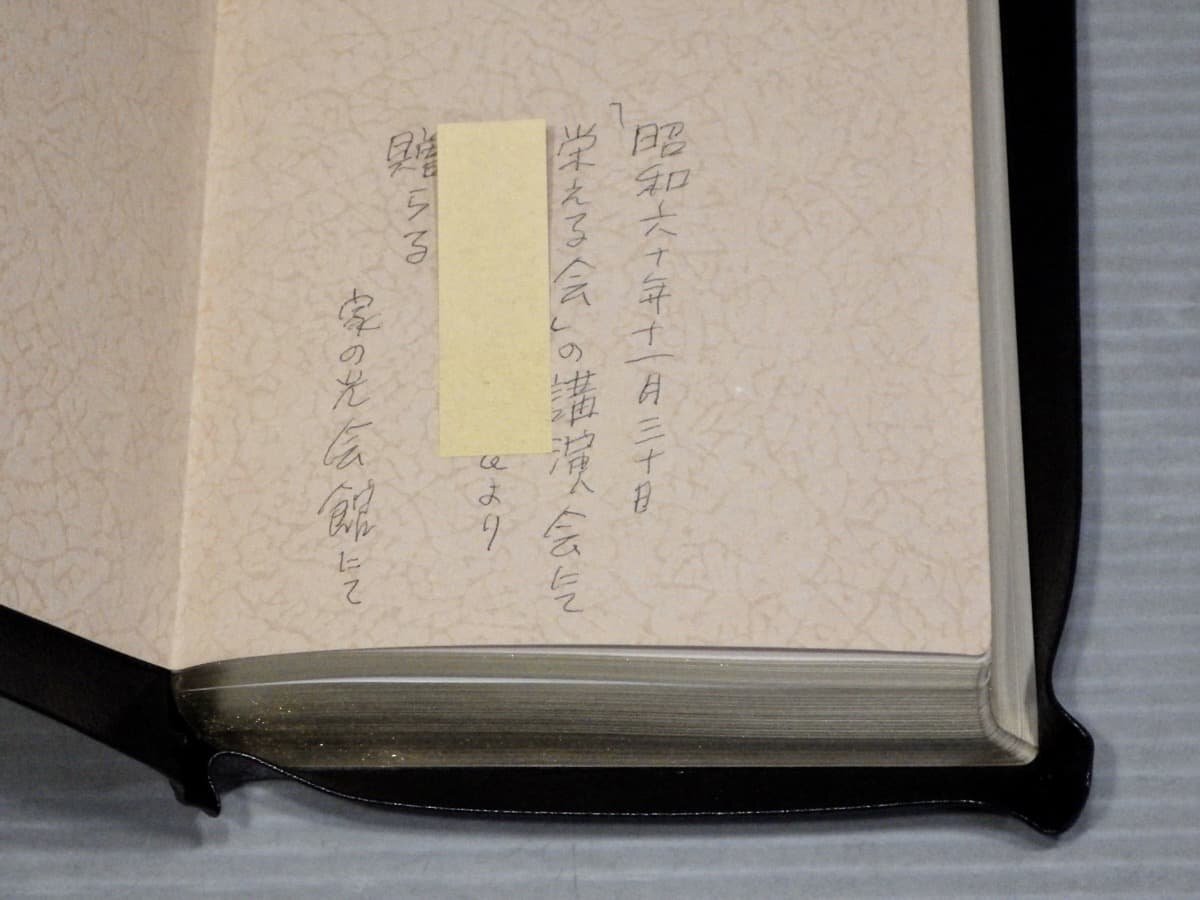 昭和六十年十一月三十日
「栄える会」の講演会にて
より
贈らる
家の光会館にて